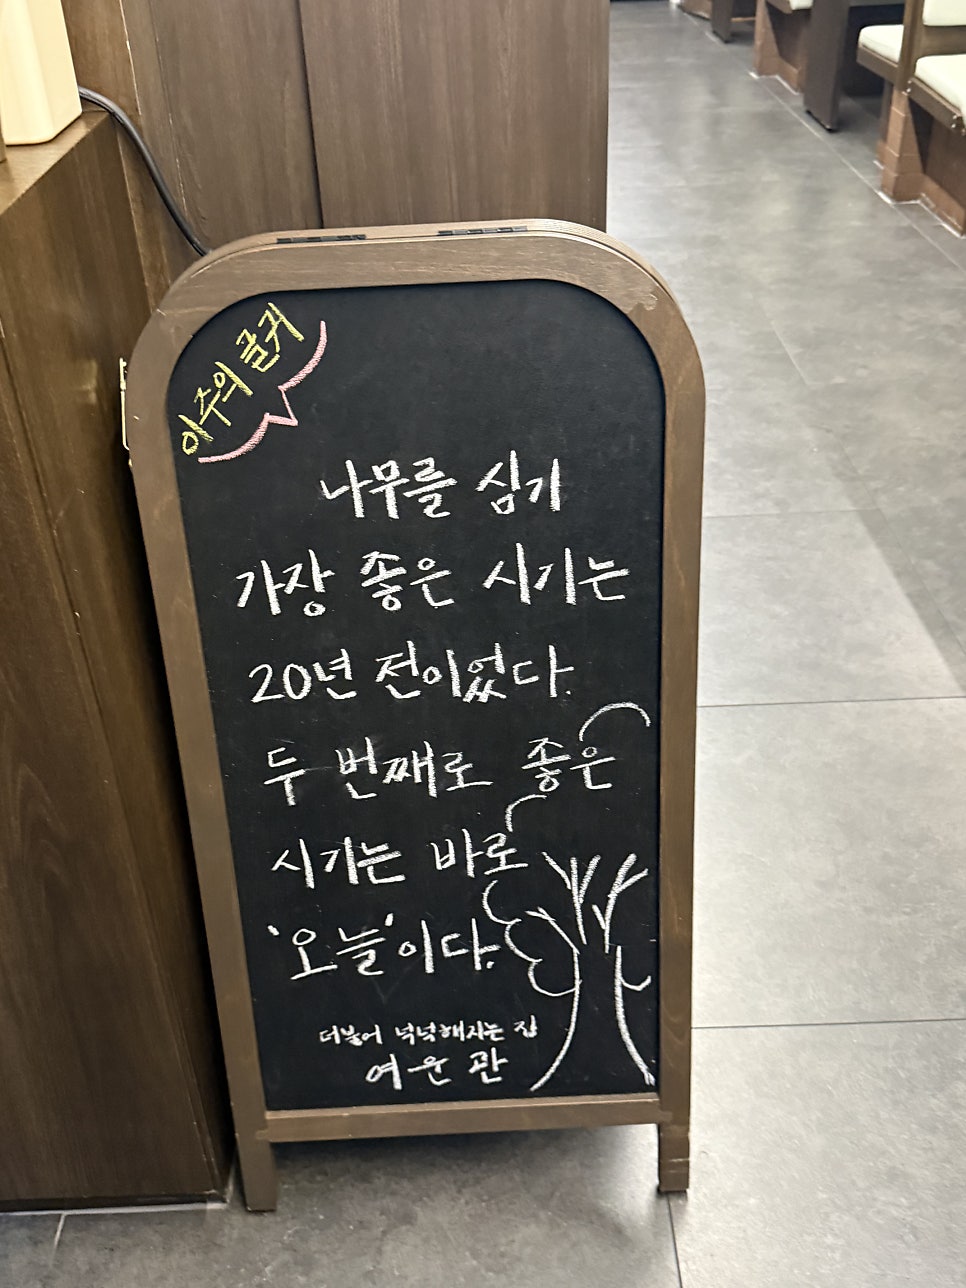 이주의 글귀
나무를 심기
가장 좋은 시기는
20년 전이었다.
두 번째로 좋은
시기는 바로
'오늘'이다.
더불어 넉넉해지는 집
여운관